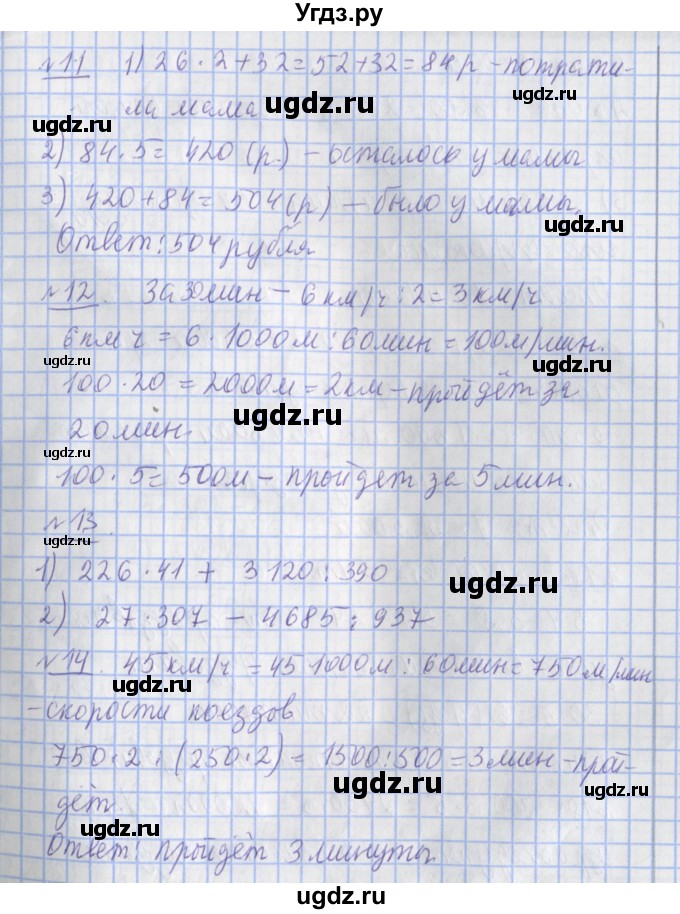 Угдз.ру
№11 1) 26·2+32=52+32=84р - потрати-
ла мама
ugdz.ru ugdz.ru
2) 84·5= 420 (р.) - осталось у мамы
3) 420+84= 504(р) - было у мамы.
ugdz.ru ugdz.ru
Ответ: 504 рубля
№12. За 30 мин - 6 км/ч : 2 = 3 км/ч
6 км ч = 6·1000м : 60 мин = 100м/мин.
ugdz.ru ugdz.ru
100·20 = 2000м = 2км - пройдёт за
ugdz.ru
20 мин
ugdz.ru
100·5= 500м - пройдет за 5 мин.
№13.
ugdz.ru
1) 226·41 + 3120 : 390
ugdz.ru
2) 27·307 - 4685 : 937
ugdz.ru
№14. 45 км/ч = 45 1000м : 60мин= 750м/мин
ugdz.ru
- скорости поездов
ugdz.ru
750·2 : (250·2) = 1500:500 = 3 мин - прой-
ugdz.ru ugdz.ru
дёт.
ugdz.ru
Ответ: пройдёт 3 минуты.
ugdz.ru
ugdz.ru